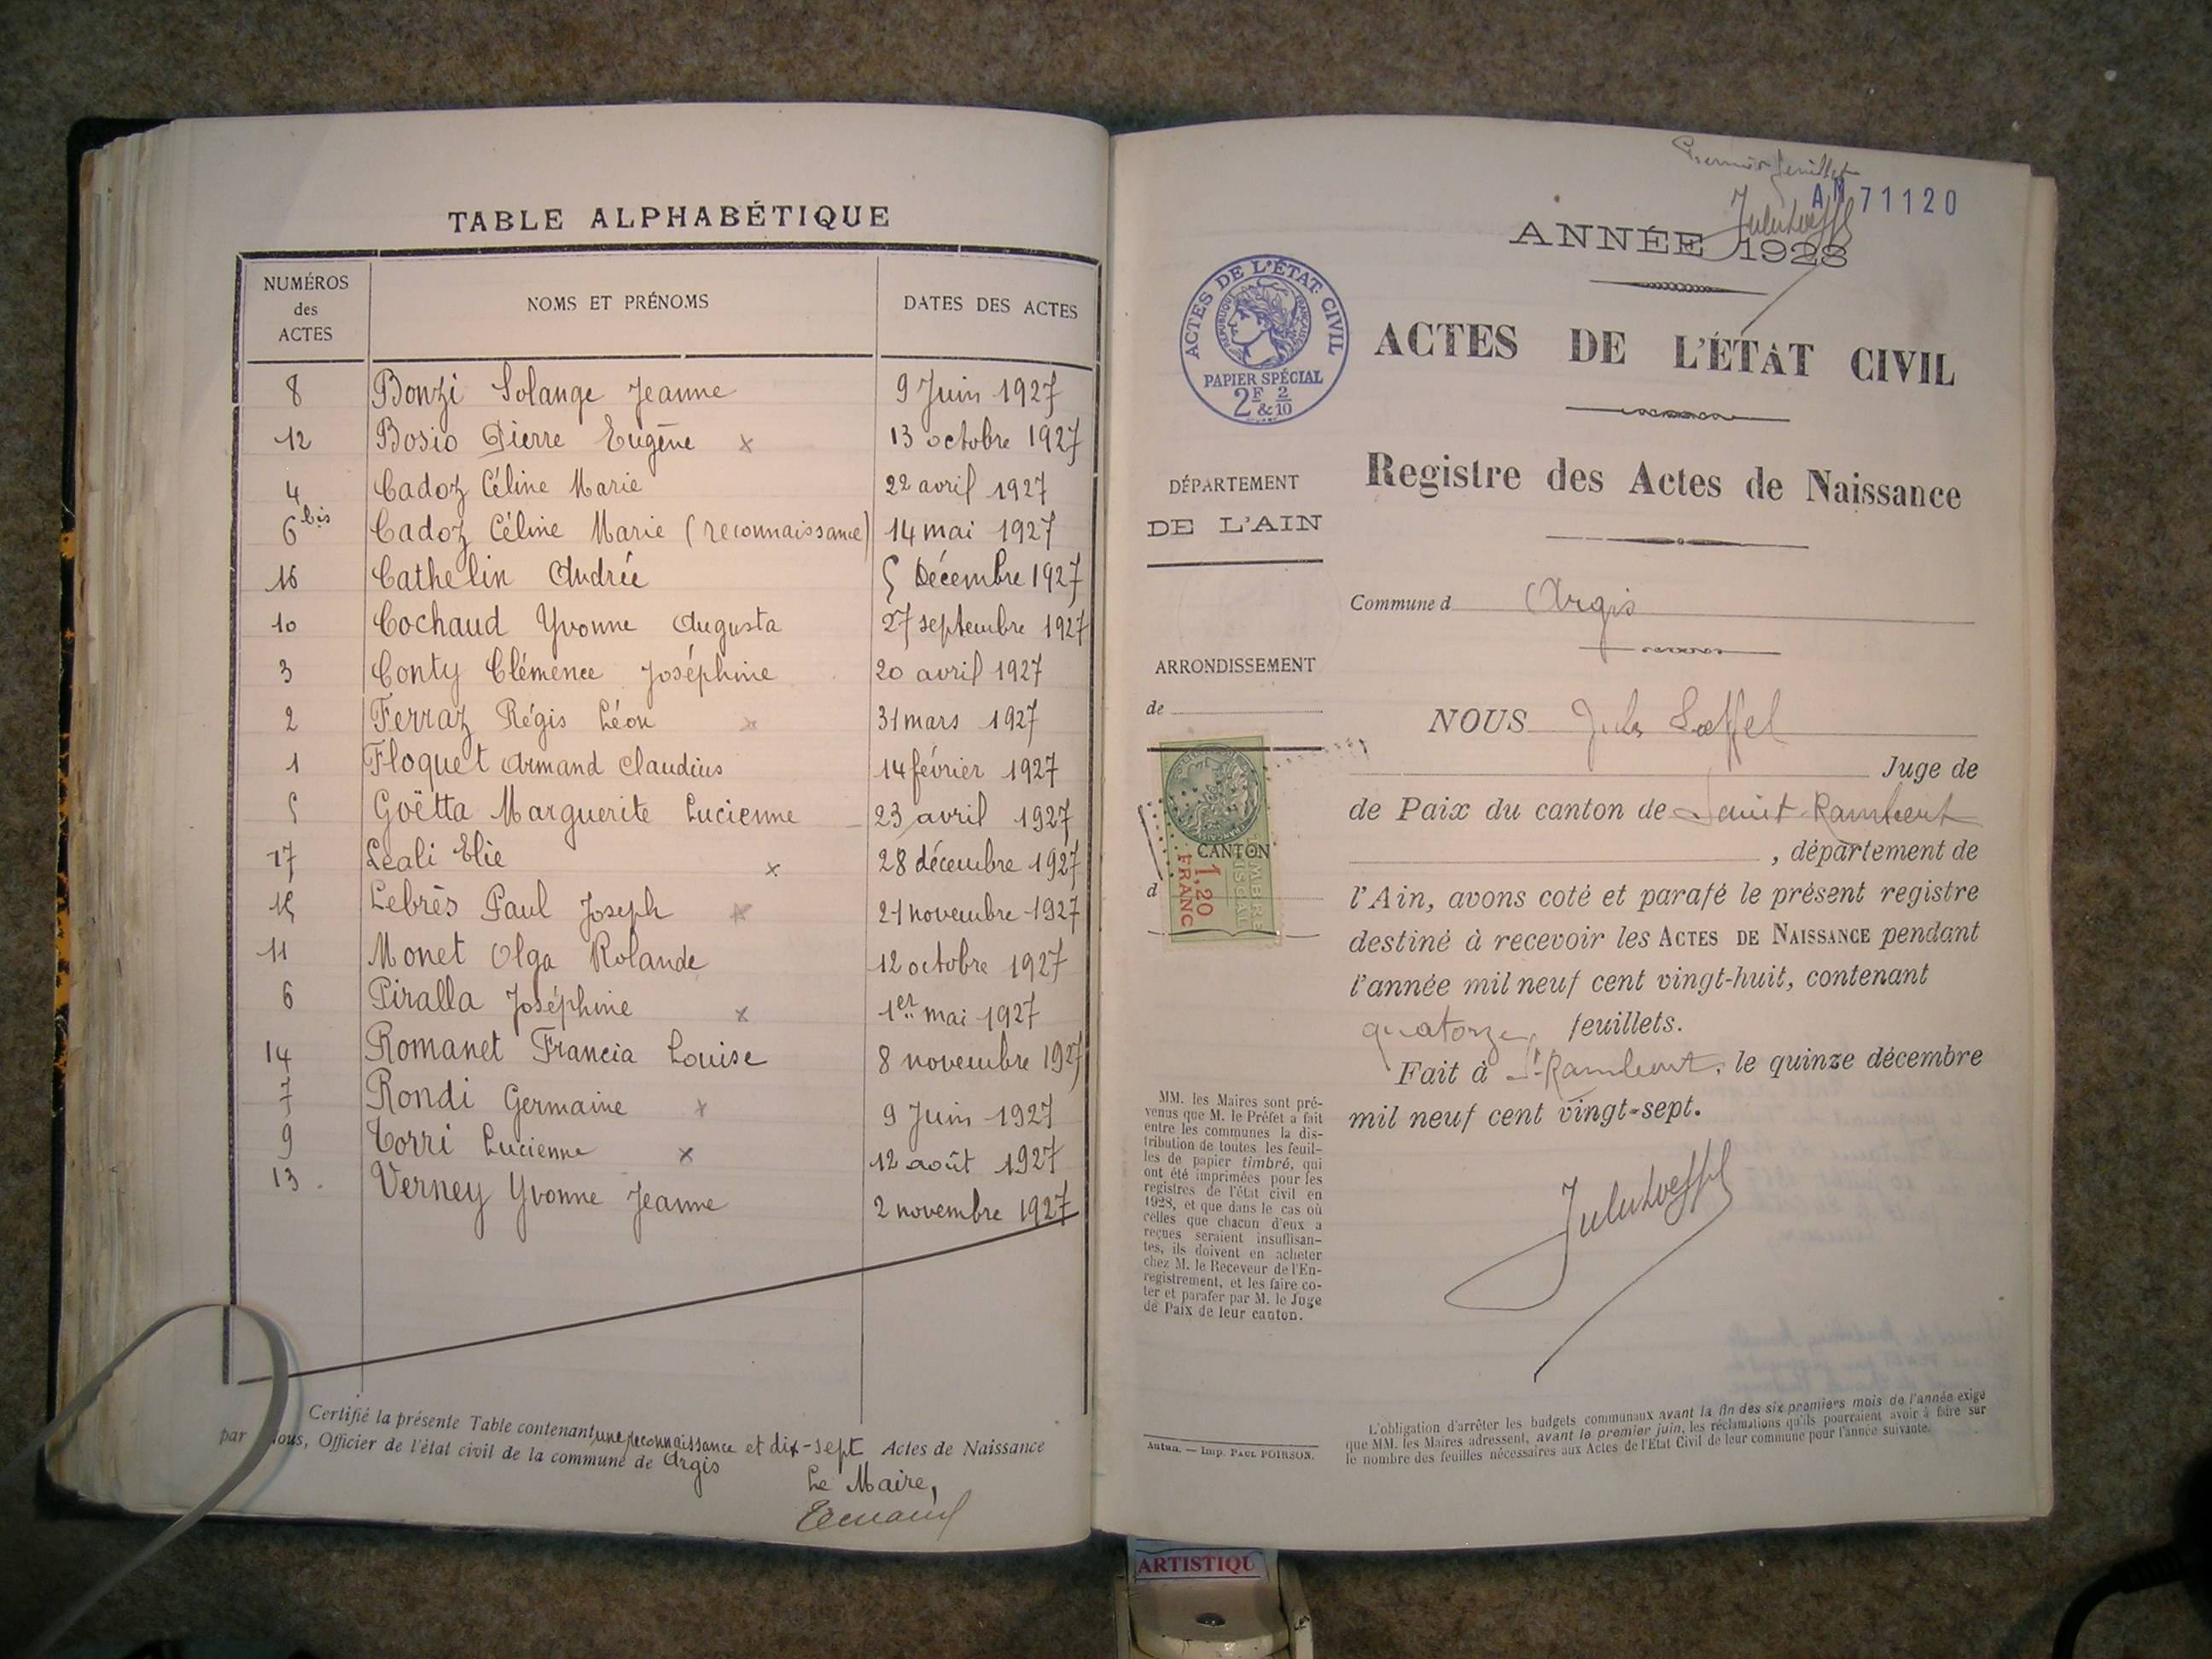 TABLE ALPHABÉTIQUE
NUMÉROS des ACTES NOMS ET PRÉNOMS DATES DES ACTES
8 Bonzi Solange Jeanne 9 Juin 1927
12 Bosio Pierre Eugène x 13 octobre 1927
4 Cadoz Céline Marie 22 avril 1927
6 bis Cadoz Céline Marie (reconnaissance) 14 mai 1927
16 Cathelin Andrée 5 Décembre 1927
10 Cochaud Yvonne Augusta 27 septembre 1927
3 Conty Clémence Joséphine 20 avril 1927
2 Ferraz Régis Léon x 31 mars 1927
1 Floquet Armand Claudius 14 février 1927
5 Goëtta Marguerite Lucienne 23 avril 1927
17 Leali Elie x 28 décembre 1927
15 Lebrès Paul Joseph x 21 novembre 1927
11 Monet Olga Rolande 12 octobre 1927
6 Piralla Joséphine x 1er mai 1927
14 Romanet Francia Louise 8 novembre 1927
7 Rondi Germaine x 9 Juin 1927
9 Torri Lucienne x 12 août 1927
13. Verney Yvonne Jeanne 2 novembre 1927
Certifié la présente Table contenant une reconnaissance et dix-sept Actes de Naissance
par Nous, Officier de l'état civil de la commune de Argis
Le Maire,
Premier feuillet
AM 71120
ANNÉE 1928
ACTES DE L'ÉTAT CIVIL
RÉPUBLIQUE FRANÇAISE
PAPIER SPÉCIAL
2F 2
& 10
ACTES DE L'ÉTAT CIVIL
Registre des Actes de Naissance
DÉPARTEMENT
DE L'AIN
Commune d Argis
ARRONDISSEMENT
de
NOUS Jules Loeffel
Juge de
de Paix du canton de Saint-Rambert
, département de
CANTON
d
TIMBRE
FISCAL
1,20
FRANC
l'Ain, avons coté et parafé le présent registre
destiné à recevoir les ACTES DE NAISSANCE pendant
l'année mil neuf cent vingt-huit, contenant
quatorze feuillets.
Fait à St-Rambert, le quinze décembre
mil neuf cent vingt-sept.
Jules Loeffel
MM. les Maires sont pré-
venus que M. le Préfet a fait
entre les communes la dis-
tribution de toutes les feuil-
les de papier timbré, qui
ont été imprimées pour les
registres de l'état civil en
1928, et que dans le cas où
celles que chacun d'eux a
reçues seraient insuffisan-
tes, ils doivent en acheter
chez M. le Receveur de l'En-
registrement, et les faire co-
ter et parafer par M. le Juge
de Paix de leur canton.
Autun. — Imp. PAUL POIRSON.
L'obligation d'arrêter les budgets communaux avant la fin des six premiers mois de l'année exige
que MM. les Maires adressent, avant le premier juin, les réclamations qu'ils pourraient avoir à faire sur
le nombre des feuilles nécessaires aux Actes de l'Etat Civil de leur commune pour l'année suivante.
ARTISTIQU